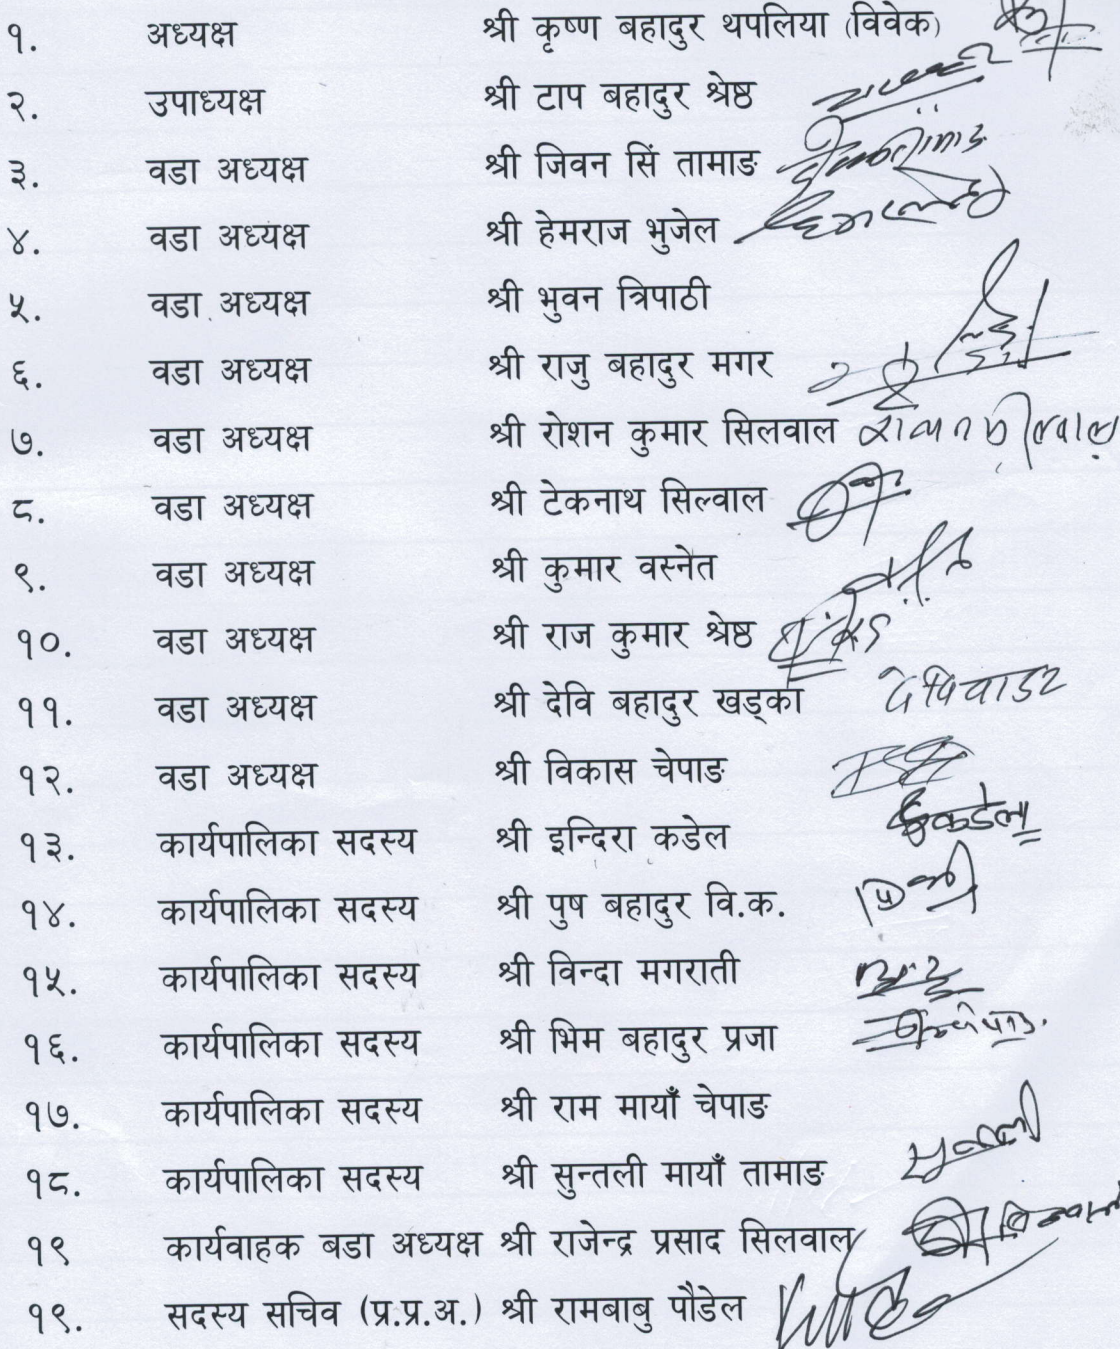 १. अध्यक्ष श्री कृष्ण बहादुर थपलिया (विवेक)
२. उपाध्यक्ष श्री टाप बहादुर श्रेष्ठ
३. वडा अध्यक्ष श्री जिवन सिं तामाङ
४. वडा अध्यक्ष श्री हेमराज भुजेल
५. वडा अध्यक्ष श्री भुवन त्रिपाठी
६. वडा अध्यक्ष श्री राजु बहादुर मगर
७. वडा अध्यक्ष श्री रोशन कुमार सिलवाल
८. वडा अध्यक्ष श्री टेकनाथ सिल्वाल
९. वडा अध्यक्ष श्री कुमार वस्नेत
१०. वडा अध्यक्ष श्री राज कुमार श्रेष्ठ
११. वडा अध्यक्ष श्री देवि बहादुर खड्का
१२. वडा अध्यक्ष श्री विकास चेपाङ
१३. कार्यपालिका सदस्य श्री इन्दिरा कडेल
१४. कार्यपालिका सदस्य श्री पुष बहादुर वि.क.
१५. कार्यपालिका सदस्य श्री विन्दा मगराती
१६. कार्यपालिका सदस्य श्री भिम बहादुर प्रजा
१७. कार्यपालिका सदस्य श्री राम मायाँ चेपाङ
१८. कार्यपालिका सदस्य श्री सुन्तली मायाँ तामाङ
१९ कार्यवाहक बडा अध्यक्ष श्री राजेन्द्र प्रसाद सिलवाल
१९. सदस्य सचिव (प्र.प्र.अ.) श्री रामबाबु पौडेल